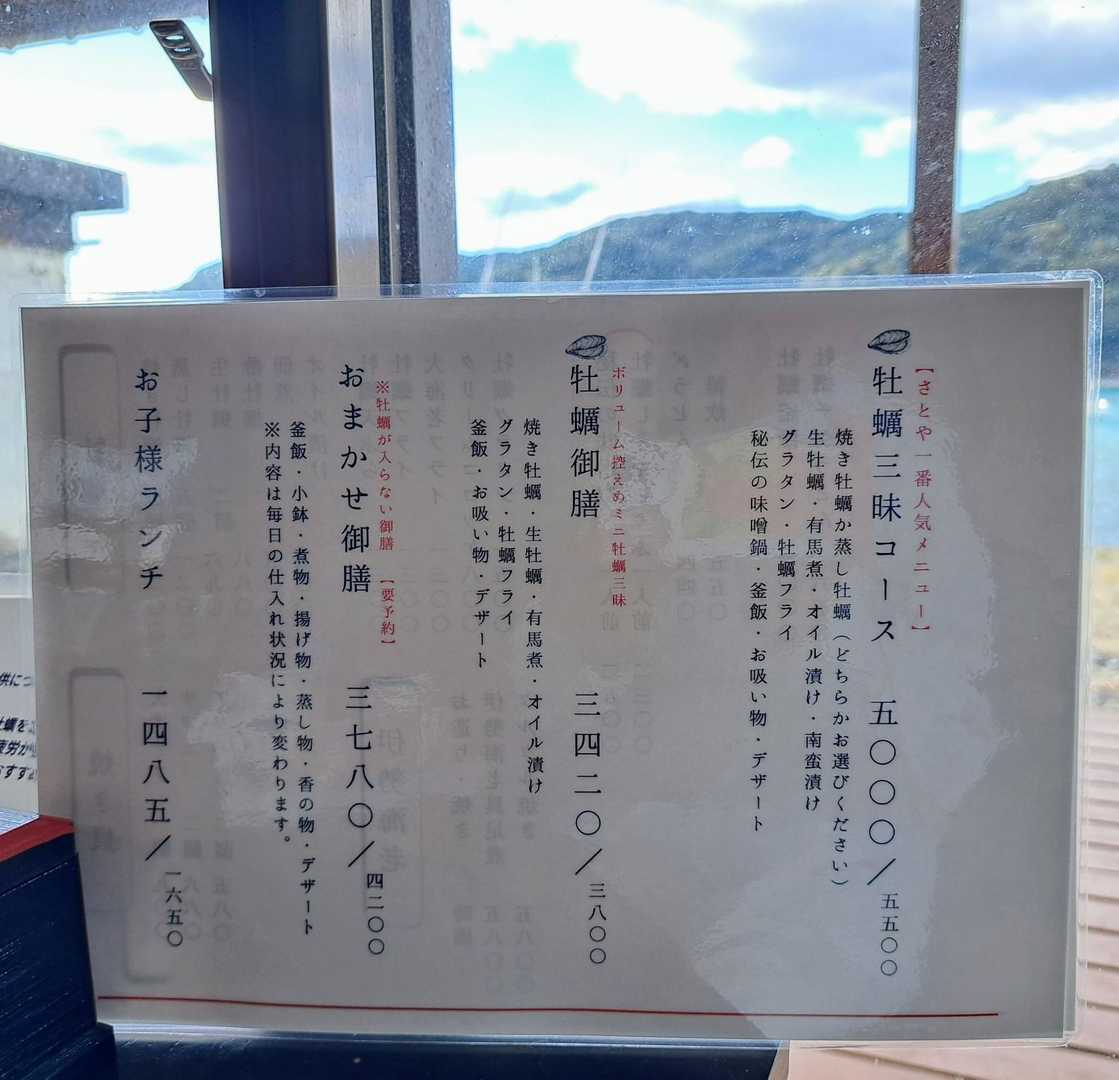 【さとや一番人気メニュー】
牡蠣三昧コース 五〇〇〇／五五〇〇
焼き牡蠣か蒸し牡蠣（どちらかお選びください）
生牡蠣・有馬煮・オイル漬け・南蛮漬け
グラタン・牡蠣フライ
秘伝の味噌鍋・釜飯・お吸い物・デザート
ボリューム控えめミニ牡蠣三昧
牡蠣御膳 三四二〇／三八〇〇
焼き牡蠣・生牡蠣・有馬煮・オイル漬け
グラタン・牡蠣フライ
釜飯・お吸い物・デザート
※牡蠣が入らない御膳 【要予約】
おまかせ御膳 三七八〇／四二〇〇
釜飯・小鉢・煮物・揚げ物・蒸し物・香の物・デザート
※内容は毎日の仕入れ状況により変わります。
お子様ランチ 一四八五／一六五〇